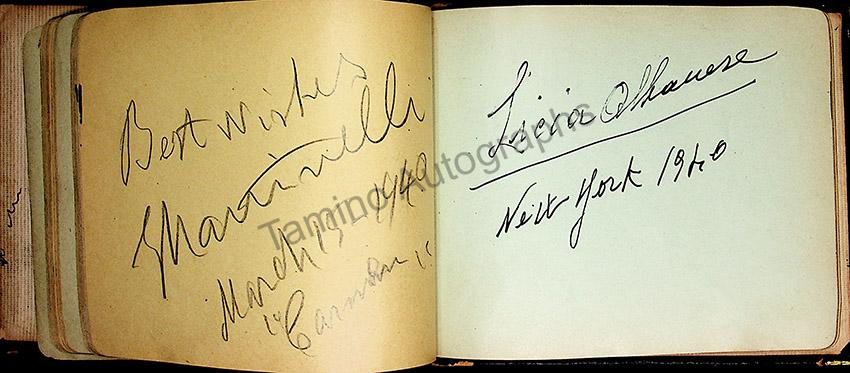 Best Wishes
GMartinelli
March 13 1940
"Carmen"
Licia Albanese
New York 1940
Tamino Autographs